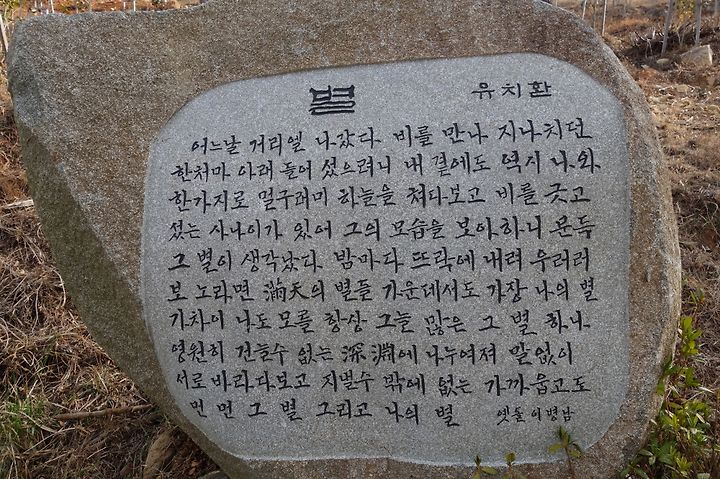 별 유치환
어느날 거리엘 나갔다. 비를 만나 지나치던
한처마 아래 들어 섰으려니 내 곁에도 역시 나와
한가지로 멀구러미 하늘을 쳐다보고 비를 긋고
섰는 사나이가 있어 그의 모습을 보아하니 문득
그 별이 생각났다. 밤마다 뜨락에 내려 우러러
보 노라면 滿天의 별들 가운데서도 가장 나의 별
가차이 나도 모를 항상 그늘 많은 그 별 하나.
영원히 건늘수 없는 深淵에 나누여져 말없이
서로 바라다보고 지낼수 밖에 없는 가까웁고도
먼 먼 그 별 그리고 나의 별 옛돌 이병남